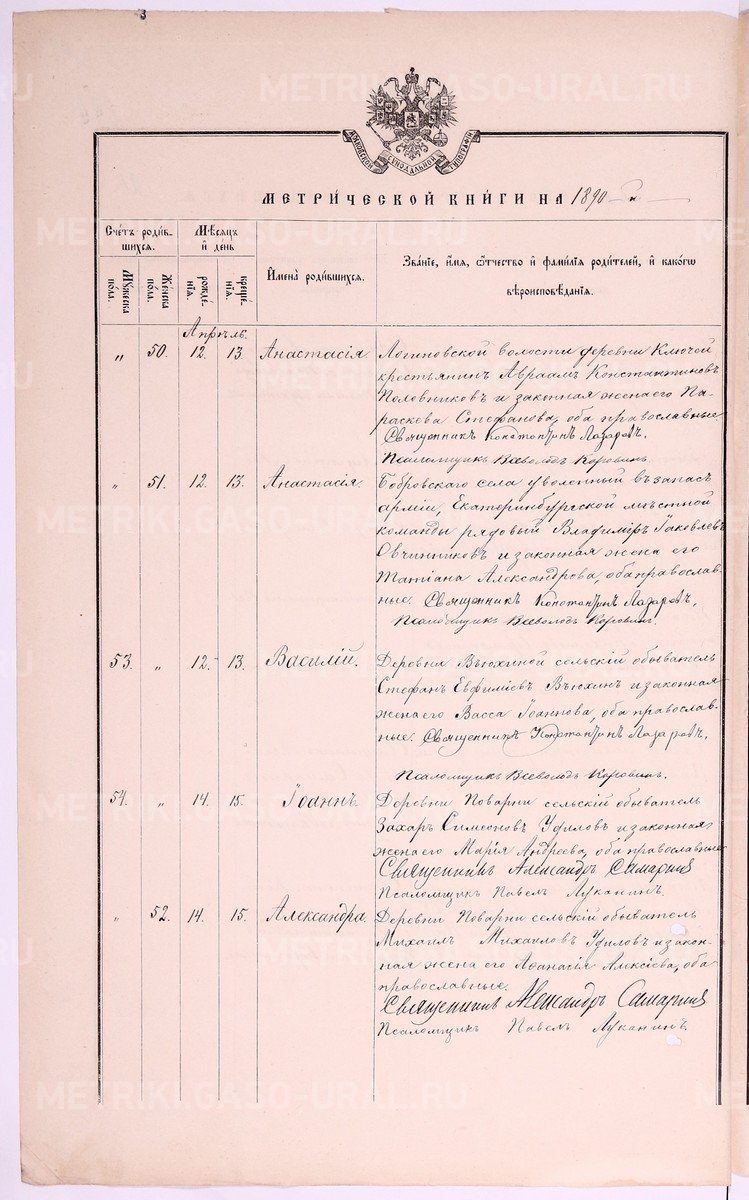 3
МОСКОВСКОЙ СѴНОДАЛЬНОЙ ТИПОГРАФІИ
МЕТРИ́ЧЕСКОЙ КНИ́ГИ НА 1890 г.
Сче́тъ роди́вшихся.
Мꙋ́жеска по́ла.
Же́нска по́ла.
Мѣ́сяцъ и҆ де́нь
рожде́нїя.
креще́нїя.
И҆мена̀ роди́вшихся.
Зва́нїе, и҆́мѧ, ѻ҆́тчество и҆ фами́лїѧ роди́телей, и҆ како́гѡ
вѣроисповѣ́данїѧ.
Апрѣль.
" 50. 12. 13. Анастасія. Логиновской волости деревни Ключей
крестьянинъ Авраамъ Константиновъ
Половниковъ и законная жена его Па-
раскева Стефанова, оба православные.
Священникъ Константинъ Лазаревъ.
Псаломщикъ Всеволодъ Коровинъ.
" 51. 12. 13. Анастасія. Бобровскаго села уволенный въ запасъ
арміи, Екатеринбургской мѣстной
команды рядовый Владиміръ Іаковлевъ
Овчинниковъ и законная жена его
Татіана Александрова, оба православ-
ные. Священникъ Константинъ Лазаревъ.
Псаломщикъ Всеволодъ Коровинъ.
53. " 12. 13. Василій. Деревни Вьюхиной сельскій обыватель
Стефанъ Евфиміевъ Вьюхинъ и законная
жена его Васса Іоаннова, оба православ-
ные. Священникъ Константинъ Лазаревъ.
Псаломщикъ Всеволодъ Коровинъ.
54. " 14. 15. Іоаннъ. Деревни Поварни сельскій обыватель
Захаръ Симеоновъ Удиловъ и законная
жена его Марія Андреева, оба православные
Священникъ Александръ Самаринъ
Псаломщикъ Павелъ Луканинъ.
" 52. 14. 15. Александра Деревни Поварни сельскій обыватель
Михаилъ Михаиловъ Удиловъ и закон-
ная жена его Аѳанасія Алексіева, оба
православные.
Священникъ Александръ Самаринъ
Псаломщикъ Павелъ Луканинъ.
METRIKI.GASO-URAL.RU